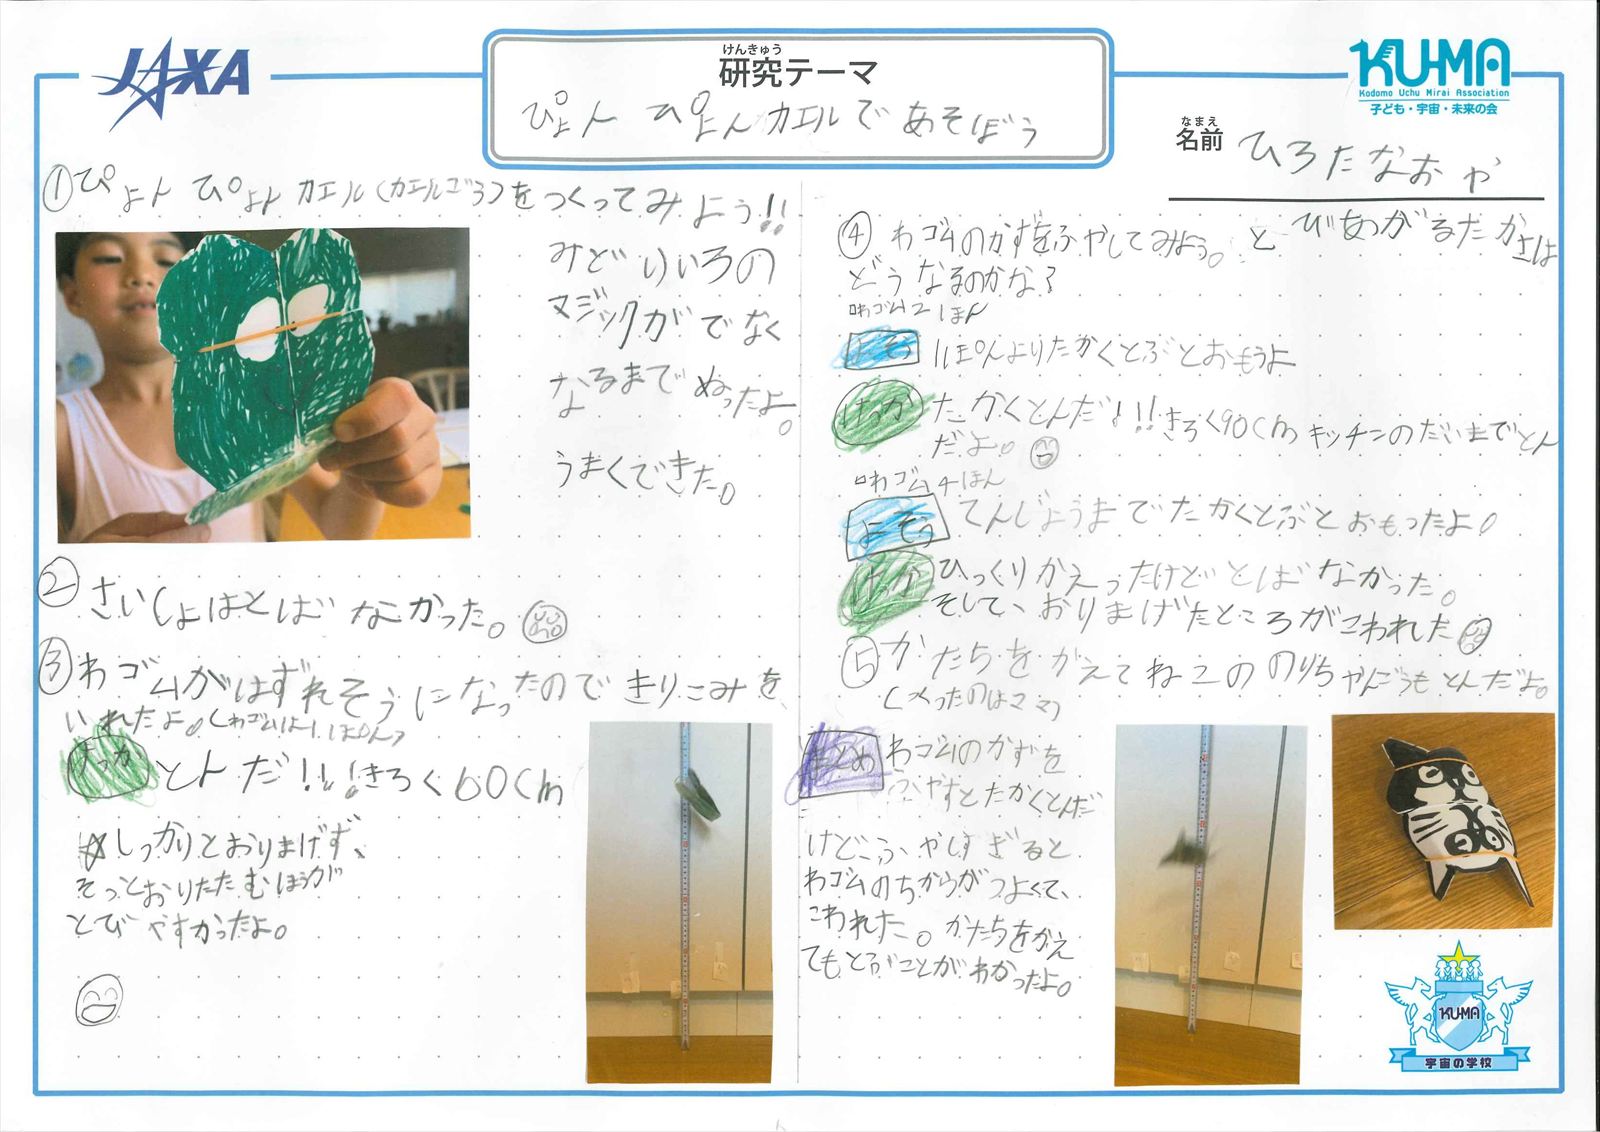 JAXA
けんきゅう
研究テーマ
ぴょん ぴょんカエルで あそぼう
KU-MA
Kodomo Uchu Mirai Association
子ども・宇宙・未来の会
なまえ
名前 ひろたなおや
①ぴょん ぴょん カエル(カエルごろう)をつくってみよう!!
みどりいろの
マジックがでなく
なるまで ぬったよ。
うまくできた。
②さいしょはとばなかった。
③わゴムがはずれそうになったので きりこみを
いれたよ。(わゴムは1ぽん)
けっか とんだ!!!きろく60cm
☆しっかりとおりまげず、
そっとおりたたむほうが
とびやすかったよ。
④わゴムのかずをふやしてみよう。とびあがるたかさは
どうなるのかな?
わゴム2ほん
よそう 1ぽんよりたかくとぶとおもうよ
けっか たかくとんだ!!!きろく90cmキッチンのだいまでとん
だよ。
わゴム4ほん
よそう てんじょうまでたかくとぶとおもったよ!
けっか ひっくりかえったけどとばなかった。
そして、おりまげたところがこわれた
⑤かたちをかえてねこののりちゃんごうもとんだよ。
(メったのはママ)
まとめ わゴムのかずを
ふやすとたかくとんだ
けど、ふやしすぎると
わゴムのちからがつよくて、
こわれた。かたちをかえ
てもとぶことがわかったよ。
KU-MA
宇宙の学校